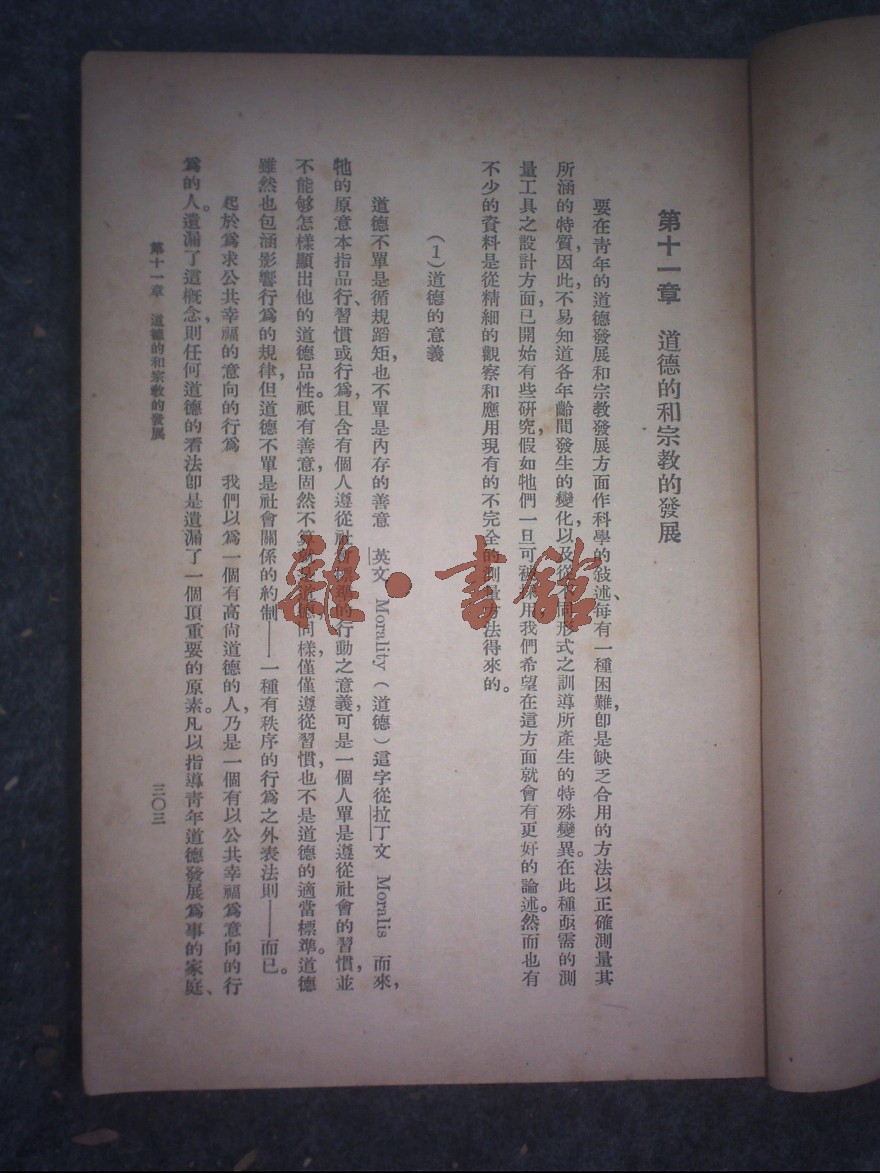 第十一章　道德的和宗教的發展
要在靑年的道德發展和宗教發展方面作科學的敍述、每有一種困難,卽是缺乏合用的方法以正確測量其
所涵的特質,因此,不易知道各年齡間發生的變化,以及從不同形式之訓導所產生的特殊變異。在此種亟需的測
量工具之設計方面,已開始有些研究,假如牠們一旦可被採用,我們希望在這方面就會有更好的論述。然而也有
不少的資料是從精細的觀察和應用現有的不完全的測量方法得來的。
(1)道德的意義
道德不單是循規蹈矩,也不單是內存的善意　英文 Morality (道德)這字從拉丁文 Moralis 而來,
牠的原意本指品行、習慣或行爲,且含有個人遵從社會標準的行動之意義,可是一個人單是遵從社會的習慣,並
不能够怎樣顯出他的道德品性。祇有善意,固然不算就是道德,同樣,僅僅遵從習慣,也不是道德的適當標準。道德
雖然也包涵影響行爲的規律,但道德不單是社會關係的約制——一種有秩序的行爲之外表法則——而已。
起於爲求公共幸福的意向的行爲　我們以爲一個有高尙道德的人,乃是一個有以公共幸福爲意向的行
爲的人。遺漏了這槪念,則任何道德的看法卽是遺漏了一個頂重要的原素。凡以指導靑年道德發展爲事的家庭、
第十一章　道德的和宗教的發展
三〇三
雜·書館